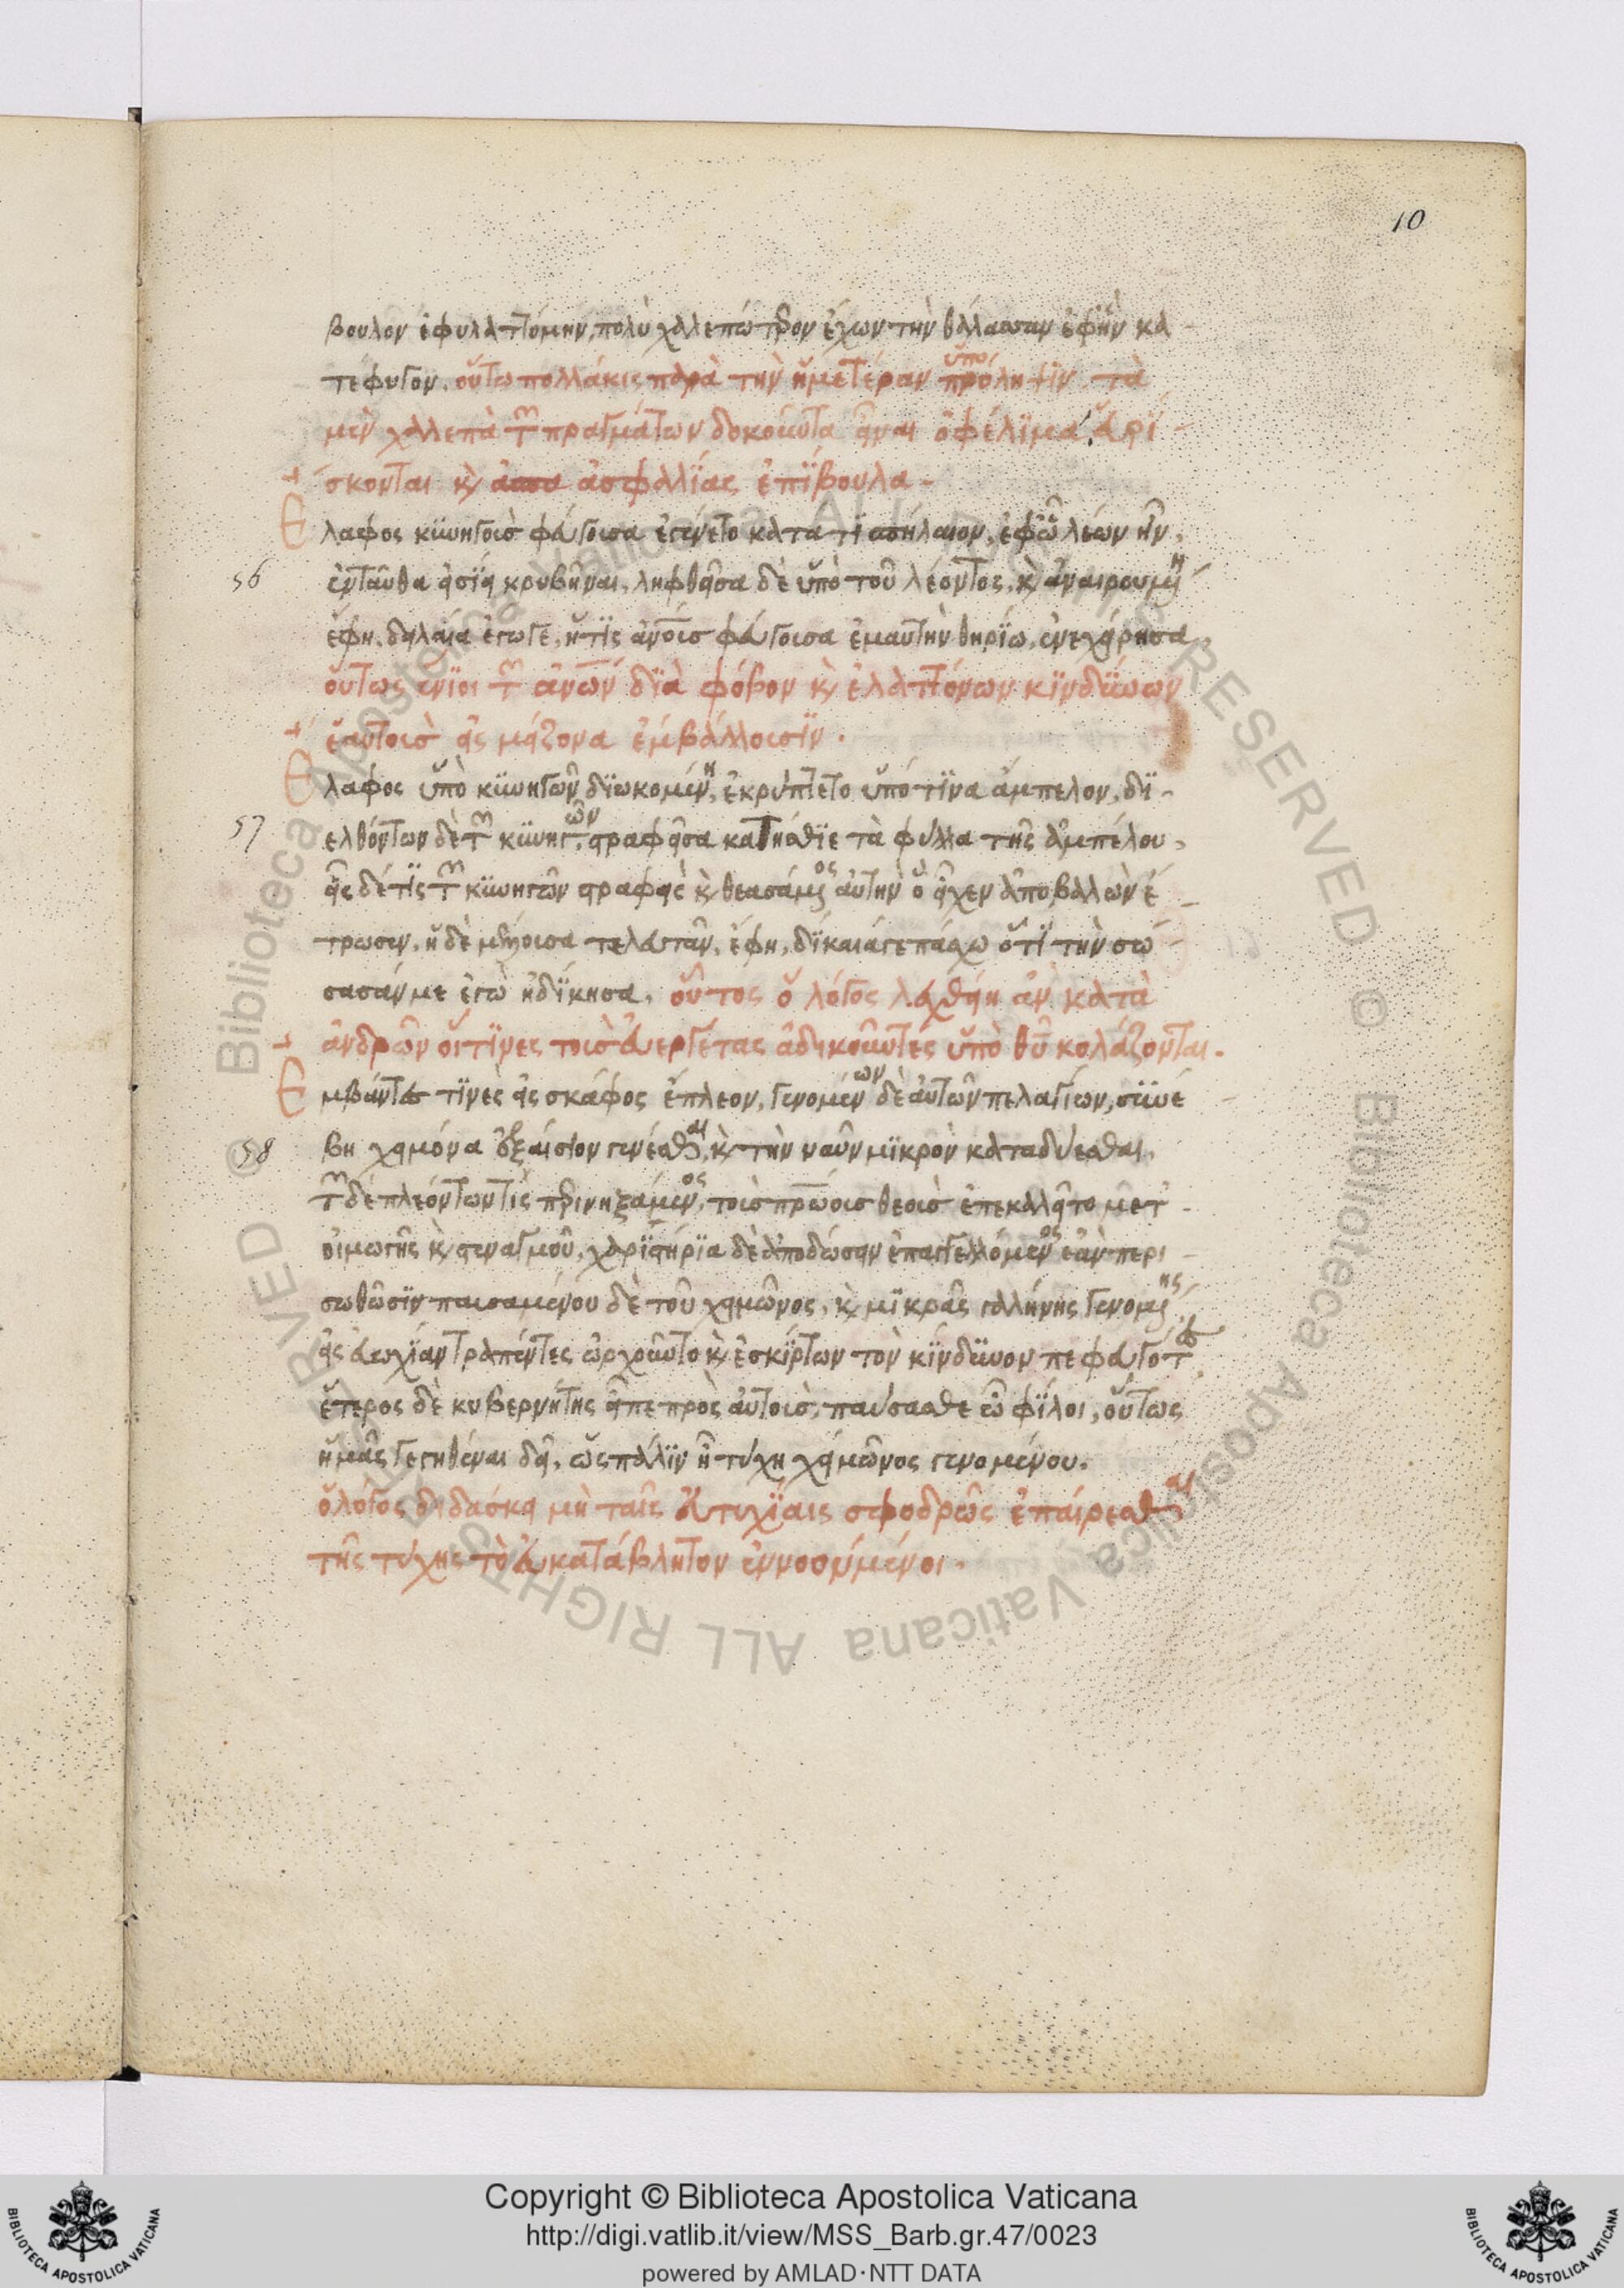 10
βουλον ἐφυλαττόμην, πολὺ χαλεπώτερον ἔχων τὴν θάλασσαν ἐφ' ἣν κα
τέφυγον. οὕτω πολλάκις παρὰ τὴν ἡμετέραν πρόληψϊν τὰ
ὑπό
μὲν χαλεπὰ τῶν πραγμάτων δοκοῦντα εἶναι ὀφέλϊμα εὑρί
σκονται κὴ ἀσφαλίας ἐπϊβουλα
Ἔλαφος κϋνηγοὺσ φεύγουσα ἐγένετο κατά τϊ σπήλαιον, ἐφ' ὧ λέων ἦν,
56 ἐνταῦθα εἰσϊει κρυβῆναι, ληφθεῖσα δὲ ὑπὸ τοῦ λέοντος, κὴ ἀναιρουμένη
ἔφη, δειλαία ἔγωγε, ἥτϊς ἀνουσ φεύγουσα ἐμαυτὴν θηρΐω, ἐνεχείρησα
οὕτως ἔνϊοι τῶν ἀνων δϊὰ φόβον κὴ ἐλαττόνων κϊνδύνων
ἑαυτοὺσ εἰς μείζονα ἐμβάλλουσϊν.
Ἔλαφος ὑπὸ κϋνηγῶν δϊωκομένη, ἐκρύπτετο ὑπό τϊνα ἄμπελον, δϊ
57 ελθόντων δὲ τῶν κϋνηγῶν, στραφεῖσα κατήσθϊε τὰ φύλλα τῆς ἀμπέλου,
εἷς δέ τϊς τῶν κϋνηγῶν στραφεὶς κὴ θεασάμενος αὐτὴν ὃ εἶχεν ἀποβαλὼν ἔ
τρωσεν, ἡ δὲ μέλλουσα τελευτᾶν, ἔφη, δϊκαιά γε πάσχω ὅτϊ τὴν σώ
σασάν με ἐγὼ ἠδΐκησα. οὗτος ὁ λόγος λεχθείη ἂν κατὰ
ἀνδρῶν οἵτϊνες τοὺσ εὐεργέτας ἀδικοῦντες ὑπὸ θυ κολάζονται.
Ἐμβάντες τϊνὲς εἰς σκάφος ἔπλεον, γενομένων δὲ αὐτῶν πελαγίων, σϋνέ
58 βη χειμόνα ἐξαίσιον γενέσθαι, κὴ τὴν ναῦν μϊκρὸν καταδύεσθαι,
τῶν δὲ πλεόντων τϊς περιρηξάμενος, τοὺσ πρώουσ θεοὺσ ἐπεκαλεῖτο μετ'
οἰμωγῆς κὴ στεναγμοῦ, χαρϊστήρϊα δὲ ἀποδώσειν ἐπαγγελλόμενος ἐὰν περι
σωθῶσϊν παυσαμένου δὲ τοῦ χειμῶνος, κὴ μϊκρᾶς γαλήνης γενομένης
εἰς εὐωχΐαν τραπέντες ὠρχοῦντο κὴ ἐσκΐρτων τὸν κΐνδϋνον πεφευγότες
ἕτερος δὲ κυβερνήτης εἶπε πρὸς αὐτοὺσ, παύσασθε ὦ φΐλοι, οὕτως
ἡμᾶς γεγηθέναι δεῖ, ὡς πάλϊν ἢ τύχη χειμῶνος γενομένου.
ὁ λόγος διδάσκει μὴ ταῖς εὐτυχΐαις σφοδρῶς ἐπαίρεσθαι
τῆς τύχης τὸ εὐκατάβλητον ἐννοούμενοι.
Copyright © Biblioteca Apostolica Vaticana
http://digi.vatlib.it/view/MSS_Barb.gr.47/0023
powered by AMLAD·NTT DATA
BIBLIOTECA APOSTOLICA VATICANA
BIBLIOTECA APOSTOLICA VATICANA
Biblioteca Apostolica Vaticana ALL RIGHTS RESERVED ©